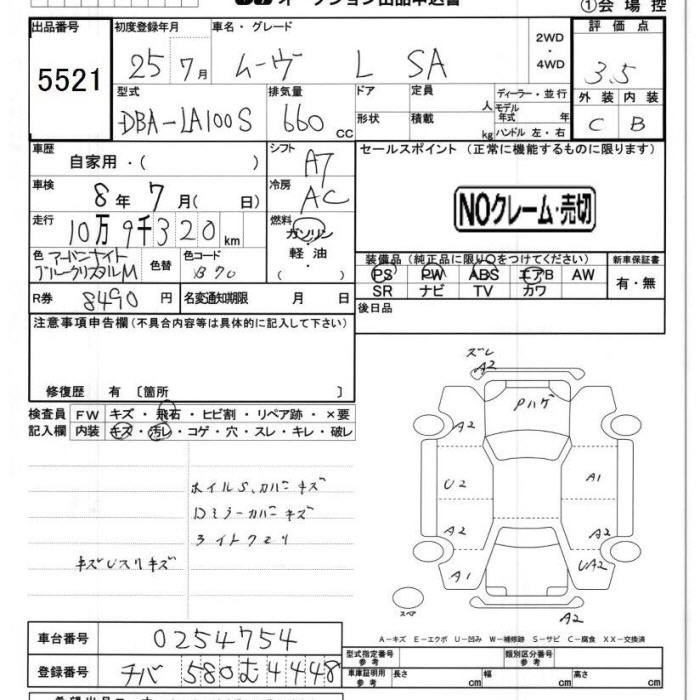 ①会場控
出品番号 初度登録年月 車名・グレード 評価点
5521 25年7月 ムーヴ L SA 2WD・4WD 3.5
型式 排気量 ドア 定員 人 ディーラー・並行 モデル年式 年 外装 内装
DBA-LA100S 660cc 形状 積載 kg ハンドル 左・右 C B
車歴 自家用・( ) シフト A7 セールスポイント (正常に機能するものに限ります)
車検 8年7月( 日) 冷房 AC NOクレーム・売切
走行 10万9千320km 燃料 ガソリン 軽油 ( )
色 アーバンナイトブルークリスタルM 色替 色コード B70 装備品 (純正品に限り○をつけてください) 新車保証書
PS PW ABS エアB AW 有・無
SR ナビ TV カワ
R券 8490円 名変通知期限 月 日 後日品
注意事項申告欄 (不具合内容等は具体的に記入して下さい)
修復歴 有 〔箇所 〕
検査員 FW キズ・飛石・ヒビ割・リペア跡・×要
記入欄 内装 キズ・汚レ・コゲ・穴・スレ・キレ・破レ
ホイルS、カバーキズ
Dミラーカバーキズ
ライトクモリ
キズUスリキズ
ズレ
A2
Pハゲ
A2
U2 A1
A2 A2
A1 UA2
スペア A2
A-キズ E-エクボ U-凹み W-補修跡 S-サビ C-腐食 XX-交換済
車台番号 0254754
型式指定番号 参考 類別区分番号 参考
登録番号 チバ 580 む 4448
車庫証明用 参考 長さ cm 幅 cm 高さ cm